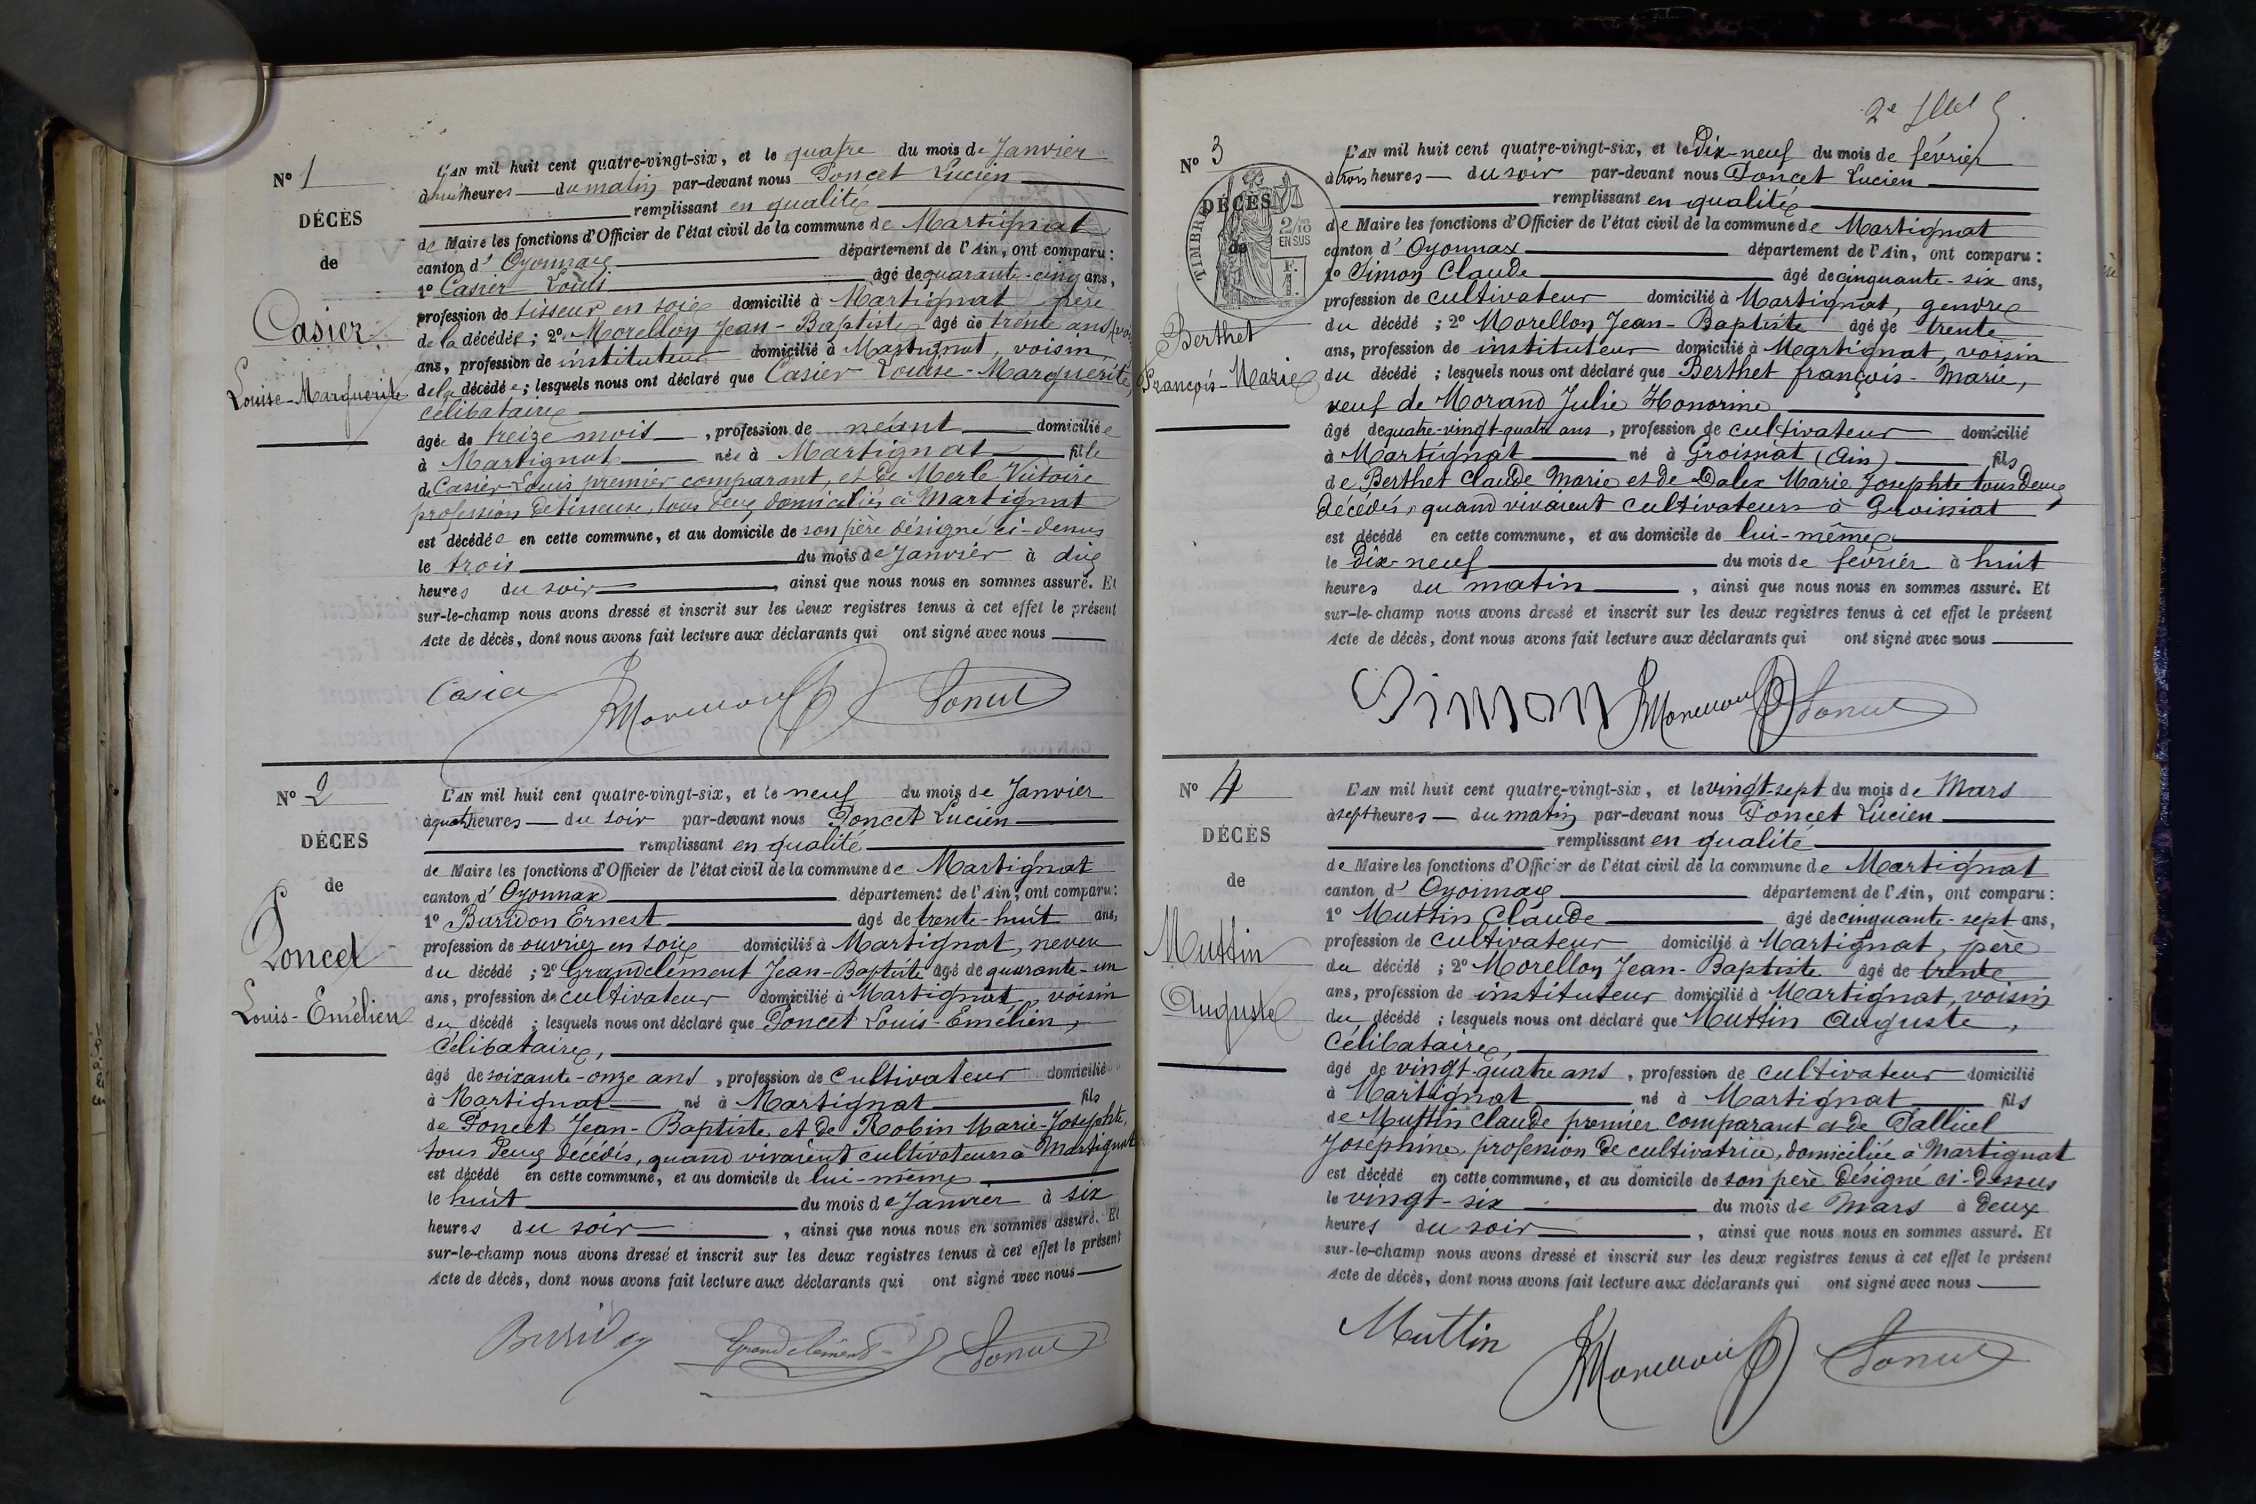 N° 1
DÉCÈS
de
Casier
Louise-Marguerite
L'AN mil huit cent quatre-vingt-six, et le quatre du mois de Janvier
à huit heures du matin par-devant nous Poncet Lucien
remplissant en qualité
de Maire les fonctions d'Officier de l'état civil de la commune de Martignat
canton d'Oyonnax département de l'Ain, ont comparu :
1° Casier Louis âgé de quarante-cinq ans,
profession de tisseur en soie domicilié à Martignat père
de la décédée ; 2° Morellon Jean-Baptiste âgé de trente ans
ans, profession de instituteur domicilié à Martignat, voisin
de la décédée ; lesquels nous ont déclaré que Casier Louise-Marguerite,
célibataire
âgée de treize mois, profession de néant domiciliée
à Martignat née à Martignat fille
de Casier Louis premier comparant, et de Merle Victoire
profession de tisseuse, tous deux domiciliés à Martignat
est décédée en cette commune, et au domicile de son père désigné ci-dessus
le trois du mois de Janvier à dix
heures du soir, ainsi que nous nous en sommes assuré. Et
sur-le-champ nous avons dressé et inscrit sur les deux registres tenus à cet effet le présent
Acte de décès, dont nous avons fait lecture aux déclarants qui ont signé avec nous
Casier Morellon Poncet
N° 2
DÉCES
de
Poncet
Louis-Emélien
L'AN mil huit cent quatre-vingt-six, et le neuf du mois de Janvier
à quatre heures du soir par-devant nous Poncet Lucien
remplissant en qualité
de Maire les fonctions d'Officier de l'état civil de la commune de Martignat
canton d'Oyonnax département de l'Ain, ont comparu :
1° Buridon Ernest âgé de trente-huit ans,
profession de ouvrier en soie domicilié à Martignat, neveu
du décédé ; 2° Grandclément Jean-Baptiste âgé de quarante-un
ans, profession de cultivateur domicilié à Martignat, voisin
du décédé ; lesquels nous ont déclaré que Poncet Louis-Emélien,
Célibataire,
âgé de soixante-onze ans, profession de cultivateur domicilié
à Martignat né à Martignat fils
de Poncet Jean-Baptiste et de Robin Marie-Josephte,
tous deux décédés, quand vivaient cultivateurs à Martignat
est décédé en cette commune, et au domicile de lui-même
le huit du mois de Janvier à six
heures du soir, ainsi que nous nous en sommes assuré. Et
sur-le-champ nous avons dressé et inscrit sur les deux registres tenus à cet effet le présent
Acte de décès, dont nous avons fait lecture aux déclarants qui ont signé avec nous
Buridon Grandclément Poncet
2e
N° 3
DÉCÈS
de
TIMBRE
2/10
EN SUS
Berthet
François-Marie
L'AN mil huit cent quatre-vingt-six, et le Dix-neuf du mois de février
à trois heures du soir par-devant nous Poncet Lucien
remplissant en qualité
de Maire les fonctions d'Officier de l'état civil de la commune de Martignat
canton d'Oyonnax département de l'Ain, ont comparu :
1° Simon Claude âgé de cinquante-six ans,
profession de cultivateur domicilié à Martignat, gendre
du décédé ; 2° Morellon Jean-Baptiste âgé de trente
ans, profession de instituteur domicilié à Martignat, voisin
du décédé ; lesquels nous ont déclaré que Berthet françois-Marie,
veuf de Morand Julie Honorine
âgé de quatre-vingt-quatre ans, profession de cultivateur domicilié
à Martignat né à Groissiat (Ain) fils
de Berthet Claude Marie et de Dalex Marie Josephte tous deux
décédés, quand vivaient cultivateurs à Groissiat
est décédé en cette commune, et au domicile de lui-même
le Dix-neuf du mois de février à huit
heures du matin, ainsi que nous nous en sommes assuré. Et
sur-le-champ nous avons dressé et inscrit sur les deux registres tenus à cet effet le présent
Acte de décès, dont nous avons fait lecture aux déclarants qui ont signé avec nous
Simon Morellon Poncet
N° 4
DÉCÈS
de
Muttin
Auguste
L'AN mil huit cent quatre-vingt-six, et le vingt-sept du mois de Mars
à sept heures du matin par-devant nous Poncet Lucien
remplissant en qualité
de Maire les fonctions d'Officier de l'état civil de la commune de Martignat
canton d'Oyonnax département de l'Ain, ont comparu :
1° Muttin Claude âgé de cinquante-sept ans,
profession de cultivateur domicilié à Martignat, père
du décédé ; 2° Morellon Jean-Baptiste âgé de trente
ans, profession de instituteur domicilié à Martignat, voisin
du décédé ; lesquels nous ont déclaré que Muttin Auguste,
Célibataire,
âgé de vingt-quatre ans, profession de cultivateur domicilié
à Martignat né à Martignat fils
de Muttin Claude premier comparant et de Palliel
Josephine, profession de cultivatrice, domiciliée à Martignat
est décédé en cette commune, et au domicile de son père désigné ci-dessus
le vingt-six du mois de Mars à deux
heures du soir, ainsi que nous nous en sommes assuré. Et
sur-le-champ nous avons dressé et inscrit sur les deux registres tenus à cet effet le présent
Acte de décès, dont nous avons fait lecture aux déclarants qui ont signé avec nous
Muttin Morellon Poncet